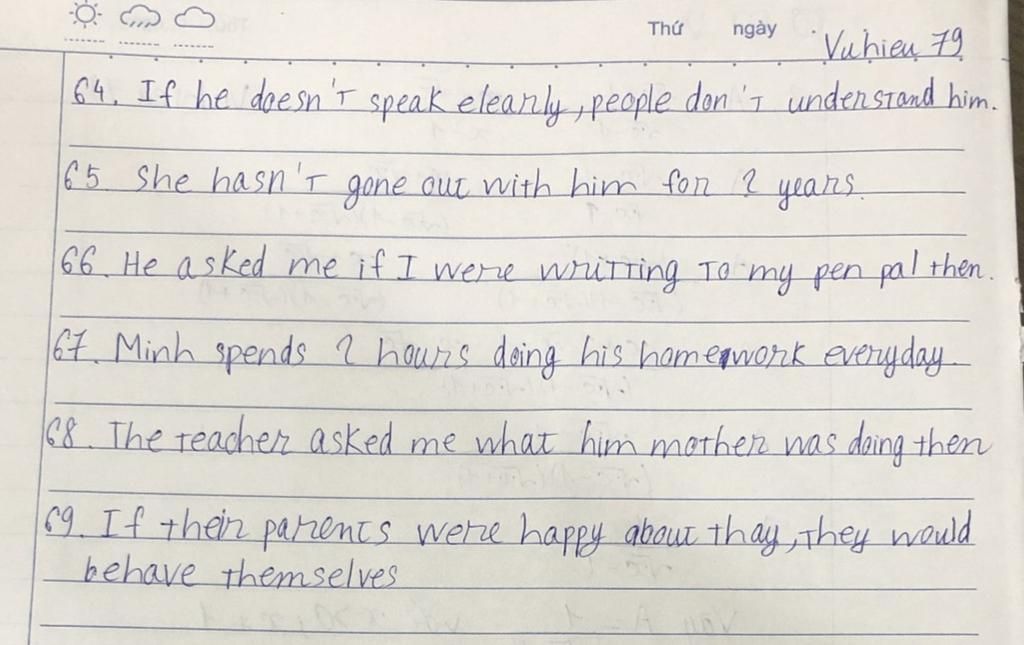 Thứ ngày Vuhieu 79
64. If he doesn't speak eleanly, people don't understand him.
65 She hasn't gone out with him for 2 years.
66. He asked me if I were writting to my pen pal then.
67. Minh spends 2 hours doing his homework everyday
68. The teacher asked me what him mother was doing then
69. If their parents were happy about thay, they would
behave themselves